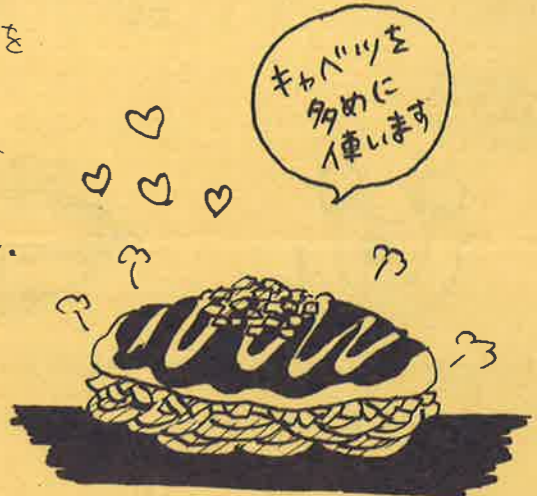 を
キャベツを
多めに
使います